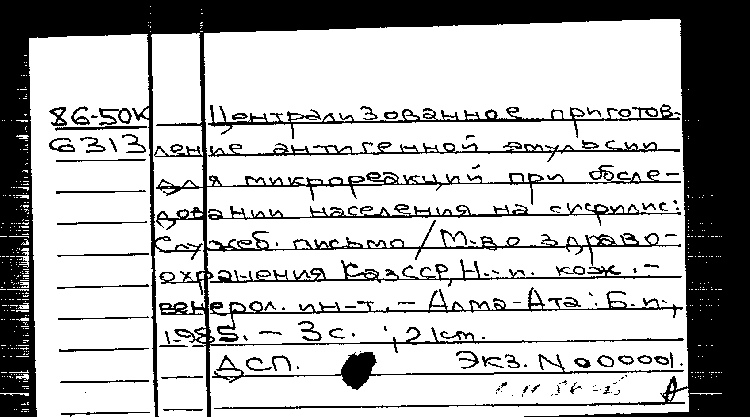 86-50К Централизованное приготов-
6313 ление антигенной эмульсии
для микрореакций при обсле-
довании населения на сифилис:
Служеб. письмо / М-во здраво-
охранения КазССР, Н.-и. кож.-
венерол. ин-т. - Алма-Ата: Б.и.,
1985. - 3 с. ; 21 см.
ДСП. Экз. N 000001.